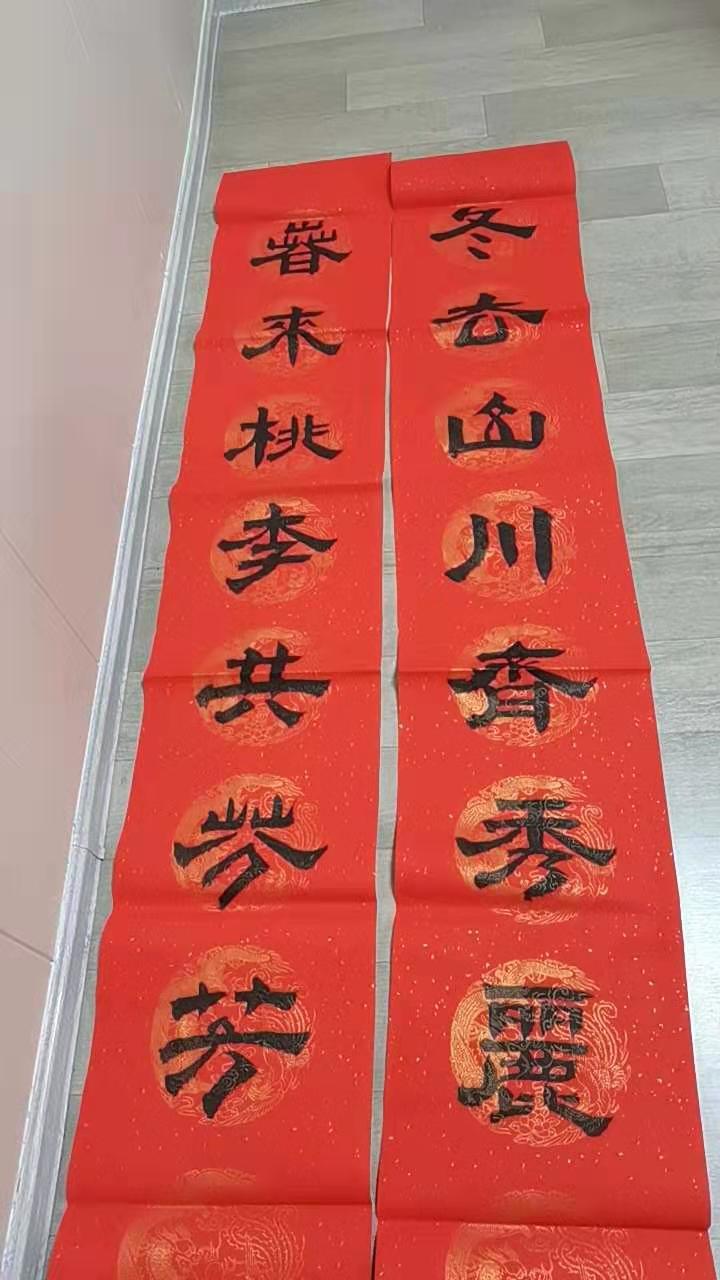 冬去山川齊秀麗
春來桃李共芬芳